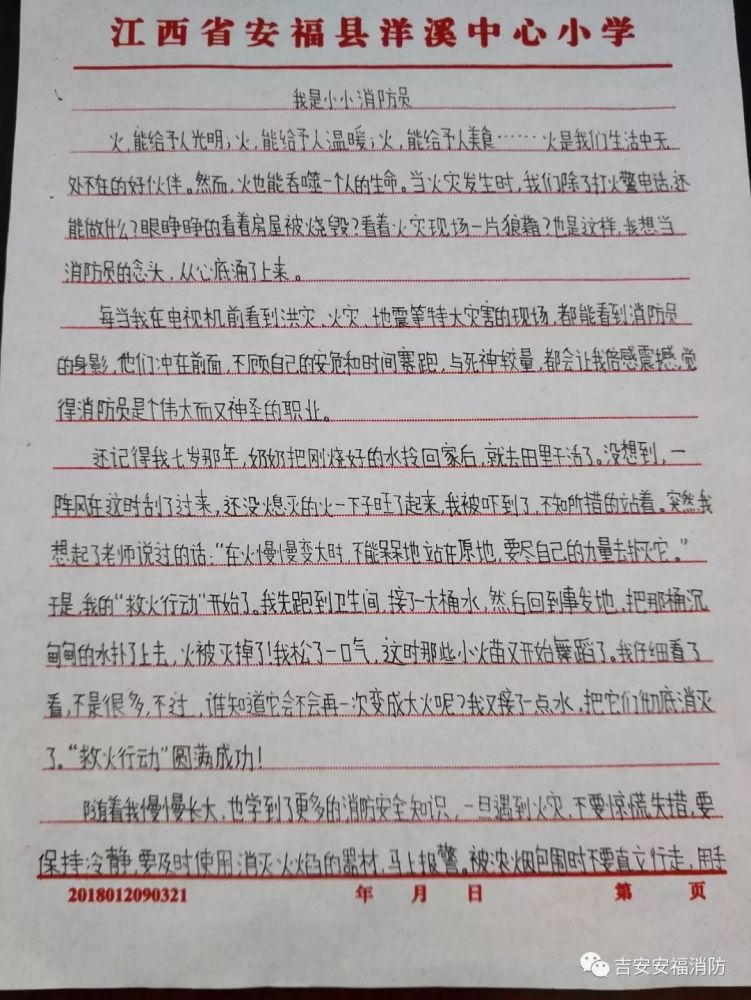 江西省安福县洋溪中心小学
我是小小消防员
火,能给予人光明;火,能给予人温暖;火,能给予人美食……火是我们生活中无
处不在的好伙伴。然而,火也能吞噬一个人的生命。当火灾发生时,我们除了打火警电话,还
能做什么?眼睁睁的看着房屋被烧毁?看着火灾现场一片狼藉?也是这样,我想当
消防员的念头,从心底涌了上来。
每当我在电视机前看到洪灾、火灾、地震等特大灾害的现场,都能看到消防员
的身影,他们冲在前面,不顾自己的安危和时间赛跑,与死神较量,都会让我倍感震撼,觉
得消防员是个伟大而又神圣的职业。
还记得我七岁那年,奶奶把刚烧好的水拎回家后,就去田里干活了。没想到,一
阵风在这时刮了过来,还没熄灭的火一下子旺了起来,我被吓到了,不知所措的站着。突然我
想起了老师说过的话:“在火慢慢变大时,不能呆呆地站在愿地,要尽自己的力量去扑灭它。”
于是,我的“救火行动”开始了。我先跑到卫生间,接了一大桶水,然后回到事发地,把那桶沉
甸甸的水扑了上去,火被灭掉了!我松了一口气,这时那些小火苗又开始舞蹈了。我仔细看了
看,不是很多,不过,谁知道它会不会再一次变成大火呢?我又接了一点水,把它们彻底消灭
了。“救火行动”圆满成功!
随着我慢慢长大,也学到了更多的消防安全知识,一旦遇到火灾,不要惊慌失措,要
保持冷静,要及时使用消灭火焰的器材,马上报警。被浓烟包围时不要直立行走,用手
2018012090321 年 月 日 第 页
吉安安福消防